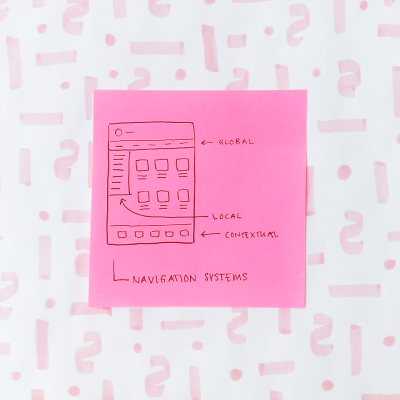 GLOBAL
LOCAL
CONTEXTUAL
NAVIGATION SYSTEMS